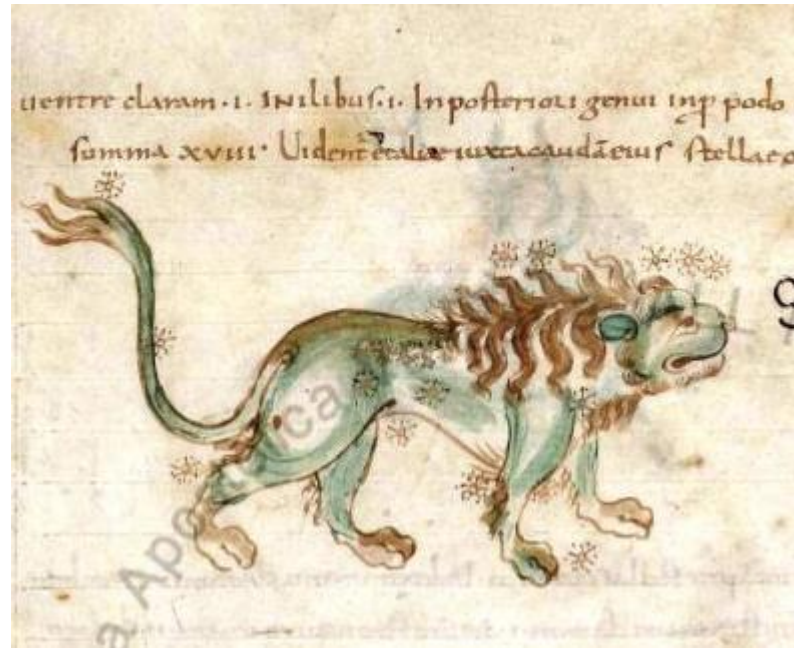 uentre claram·i· INilibus·i· Inposteriori genui inp podo
summa xviii· Uident etaliae iuxtacaudā eius stellae
g
ica
a Apo